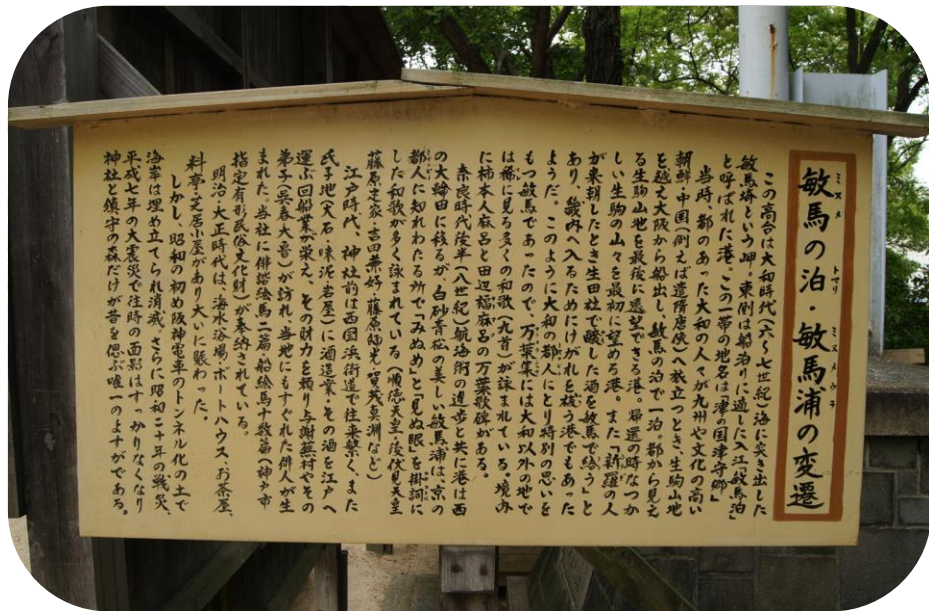 敏馬の泊・敏馬浦の変遷
ミヌメ トマリ ミヌメウラ
この高台は大和時代(六〜七世紀)海に突き出した
敏馬埼という岬・東側は船泊りに適した入江「敏馬泊」
と呼ばれた港。この一帯の地名は「津の国津守郷」
当時、都のあった大和の人々が九州や文化の高い
朝鮮・中国(例えば遣隋唐使)へ旅立つとき、生駒山地
を越え大阪から船出し、敏馬の泊で一泊。都から見え
る生駒山地を最後に遠望できる港。帰還の時なつか
しい生駒の山々を最初に望める港。また「新羅の人
が来朝したとき生田社で醸した酒を敏馬で給う」と
あり、畿内へ入るためにけがれを祓う港でもあった
ようだ。このように大和の都人にとり特別の思いを
もつ敏馬であったので、万葉集には大和以外の地で
は稀に見る多くの和歌(九首)が詠まれている。境内
に柿本人麻呂と田辺福麻呂の万葉歌碑がある。
奈良時代後半(八世紀)航海術の進歩と共に港は西
の大輪田に移るが、白砂青松の美しい敏馬浦は、京の
都人に知れわたる所で「みぬめ」と「見ぬ眼」を掛詞に
した和歌が多く詠まれている(順徳天皇・後伏見天皇
藤原定家・吉田兼好・藤原師光・賀茂真渕など)
江戸時代、神社前は西国浜街道で往来繁く、また
氏子地(大石・味泥・岩屋)に酒造業・その酒を江戸へ
運ぶ回船業が栄え、その財力を頼り与謝蕪村やその
弟子(呉春・大魯)が訪れ、当地にもすぐれた俳人が生
まれた。当社に俳諧絵馬二篇・船絵馬十数篇(神戸市
指定有形民俗文化財)が奉納されている。
明治・大正時代は、海水浴場・ボートハウス・お茶屋、
料亭・芝居小屋があり大いに賑わった。
しかし、昭和の初め阪神電車のトンネル化の土で
海岸は埋め立てられ消滅。さらに昭和二十年の戦災、
平成七年の大震災で往時の面影はすっかりなくなり
神社と鎮守の森だけが昔を偲ぶ唯一のよすがである。